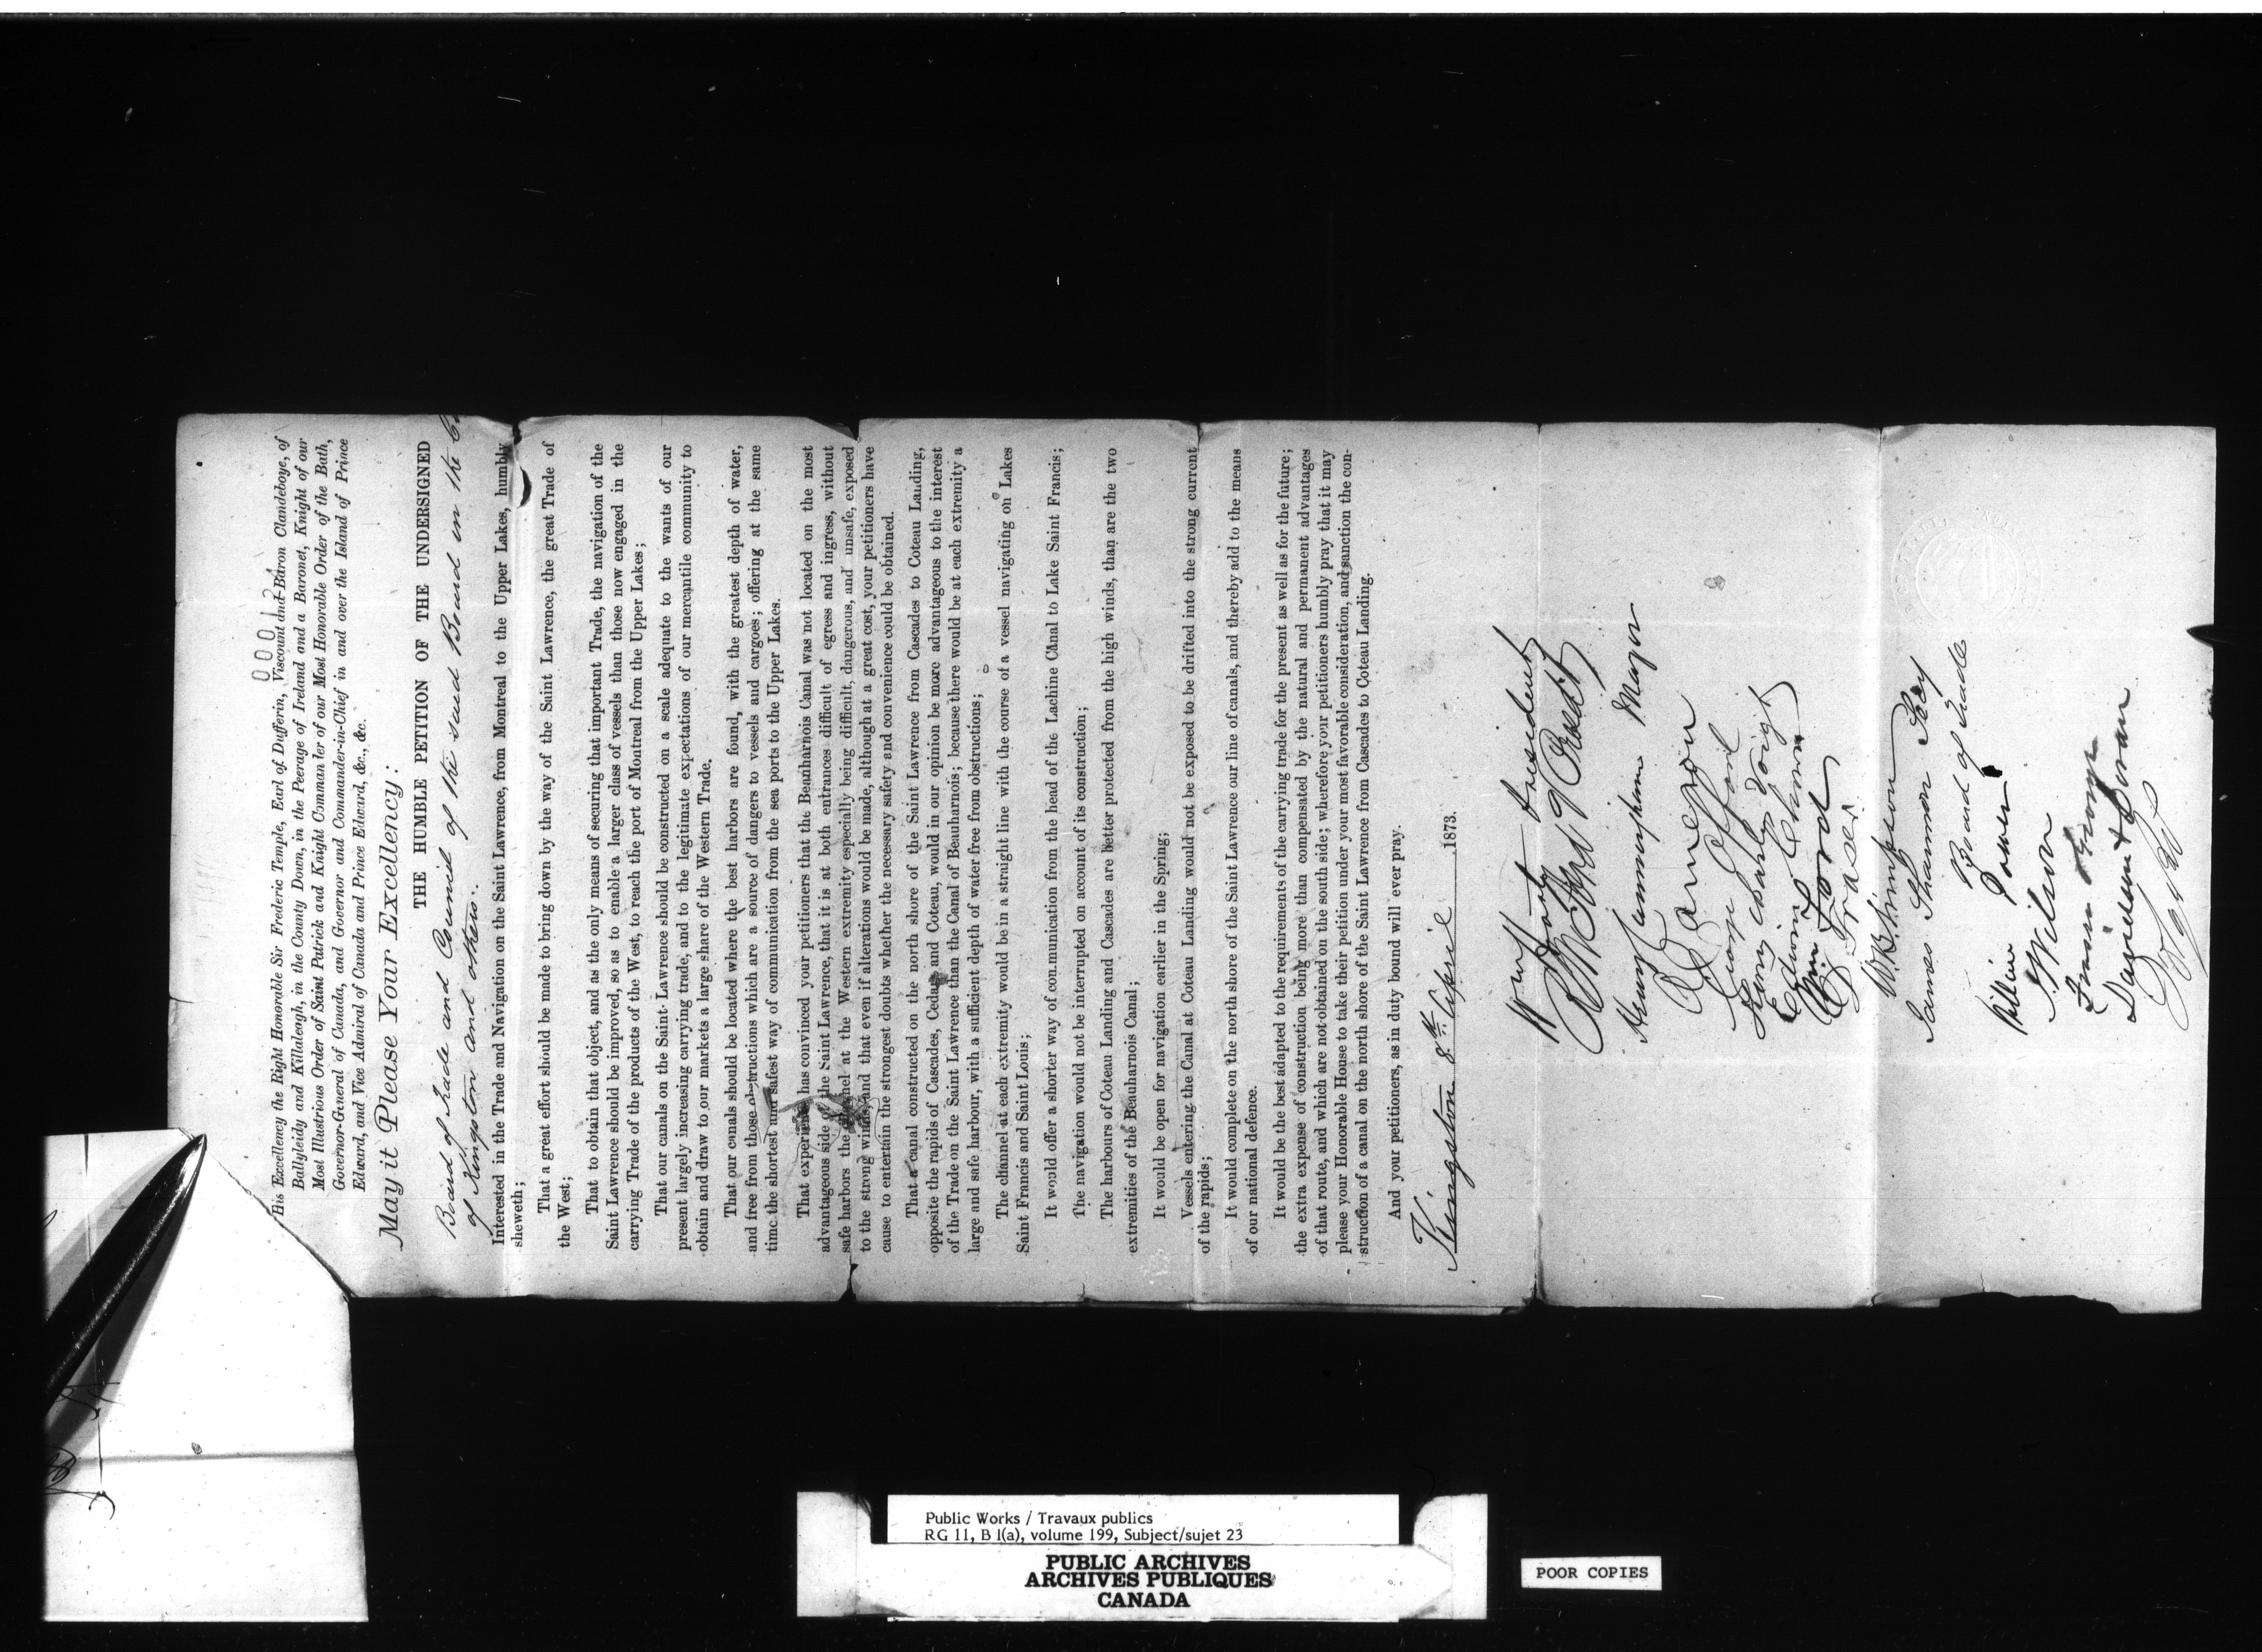 0001
His Excellency the Right Honorable Sir Frederic Temple, Earl of Dufferin, Viscount and Baron Clandeboye, of
Ballyleidy and Killaleagh, in the County Down, in the Peerage of Ireland and a Baronet, Knight of our
Most Illustrious Order of Saint Patrick and Knight Commander of our Most Honorable Order of the Bath,
Governor-General of Canada, and Governor and Commander-in-Chief in and over the Island of Prince
Edward, and Vice Admiral of Canada and Prince Edward, &c., &c.
May it Please Your Excellency:
THE HUMBLE PETITION OF THE UNDERSIGNED
Board of Trade and Council of the said Board in the
of Kingston and others.
Interested in the Trade and Navigation on the Saint Lawrence, from Montreal to the Upper Lakes, humbly
sheweth;
That a great effort should be made to bring down by the way of the Saint Lawrence, the great Trade of
the West;
That to obtain that object, and as the only means of securing that important Trade, the navigation of the
Saint Lawrence should be improved, so as to enable a larger class of vessels than those now engaged in the
carrying Trade of the products of the West, to reach the port of Montreal from the Upper Lakes;
That our canals on the Saint Lawrence should be constructed on a scale adequate to the wants of our
present largely increasing carrying trade, and to the legitimate expectations of our mercantile community to
obtain and draw to our markets a large share of the Western Trade.
That our canals should be located where the best harbors are found, with the greatest depth of water,
and free from those obstructions which are a source of dangers to vessels and cargoes; offering at the same
time the shortest and safest way of communication from the sea ports to the Upper Lakes.
That experience has convinced your petitioners that the Beauharnois Canal was not located on the most
advantageous side of the Saint Lawrence, that it is at both entrances difficult of egress and ingress, without
safe harbors the channel at the Western extremity especially being difficult, dangerous, and unsafe, exposed
to the strong winds, and that even if alterations would be made, although at a great cost, your petitioners have
cause to entertain the strongest doubts whether the necessary safety and convenience could be obtained.
That a canal constructed on the north shore of the Saint Lawrence from Cascades to Coteau Landing,
opposite the rapids of Cascades, Cedars and Coteau, would in our opinion be more advantageous to the interest
of the Trade on the Saint Lawrence than the Canal of Beauharnois; because there would be at each extremity a
large and safe harbour, with a sufficient depth of water free from obstructions;
The channel at each extremity would be in a straight line with the course of a vessel navigating on Lakes
Saint Francis and Saint Louis;
It would offer a shorter way of communication from the head of the Lachine Canal to Lake Saint Francis;
The navigation would not be interrupted on account of its construction;
The harbours of Coteau Landing and Cascades are better protected from the high winds, than are the two
extremities of the Beauharnois Canal;
It would be open for navigation earlier in the Spring;
Vessels entering the Canal at Coteau Landing would not be exposed to be drifted into the strong current
of the rapids;
It would complete on the north shore of the Saint Lawrence our line of canals, and thereby add to the means
of our national defence.
It would be the best adapted to the requirements of the carrying trade for the present as well as for the future;
the extra expense of construction being more than compensated by the natural and permanent advantages
of that route, and which are not obtained on the south side; wherefore your petitioners humbly pray that it may
please your Honorable House to take their petition under your most favorable consideration, and sanction the con-
struction of a canal on the north shore of the Saint Lawrence from Cascades to Coteau Landing.
And your petitioners, as in duty bound will ever pray.
Kingston 8th April 1873.
President
Henry Cunningham Mayor
George Offord
Edwin Chown
Wm Ford
Fraser
W.B. Simpson
James Shannon Secy
Board of Trade
William Power
Wilson
Davidson & Doran
Public Works / Travaux publics
RG 11, B 1(a), volume 199, Subject/sujet 23
PUBLIC ARCHIVES
ARCHIVES PUBLIQUES
CANADA
POOR COPIES